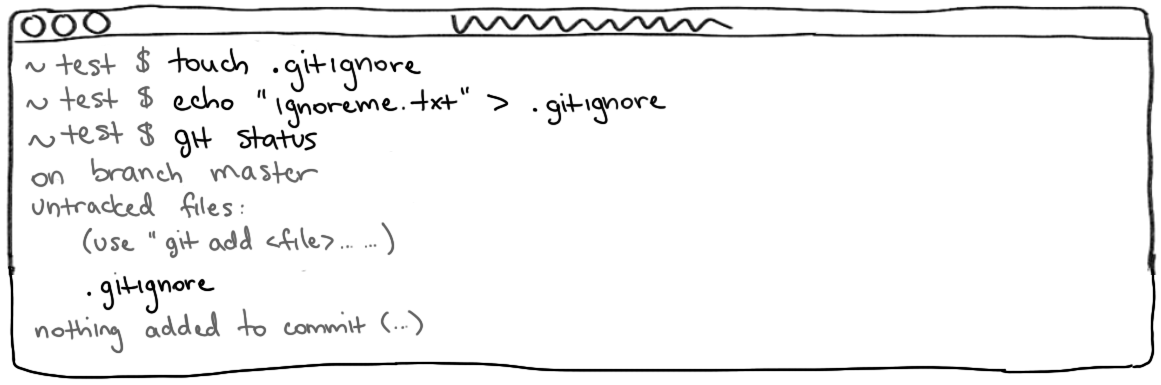 ~ test $ touch .gitignore
~ test $ echo "ignoreme.txt" > .gitignore
~ test $ git status
on branch master
untracked files:
(use "git add <file>... ...)
.gitignore
nothing added to commit (...)